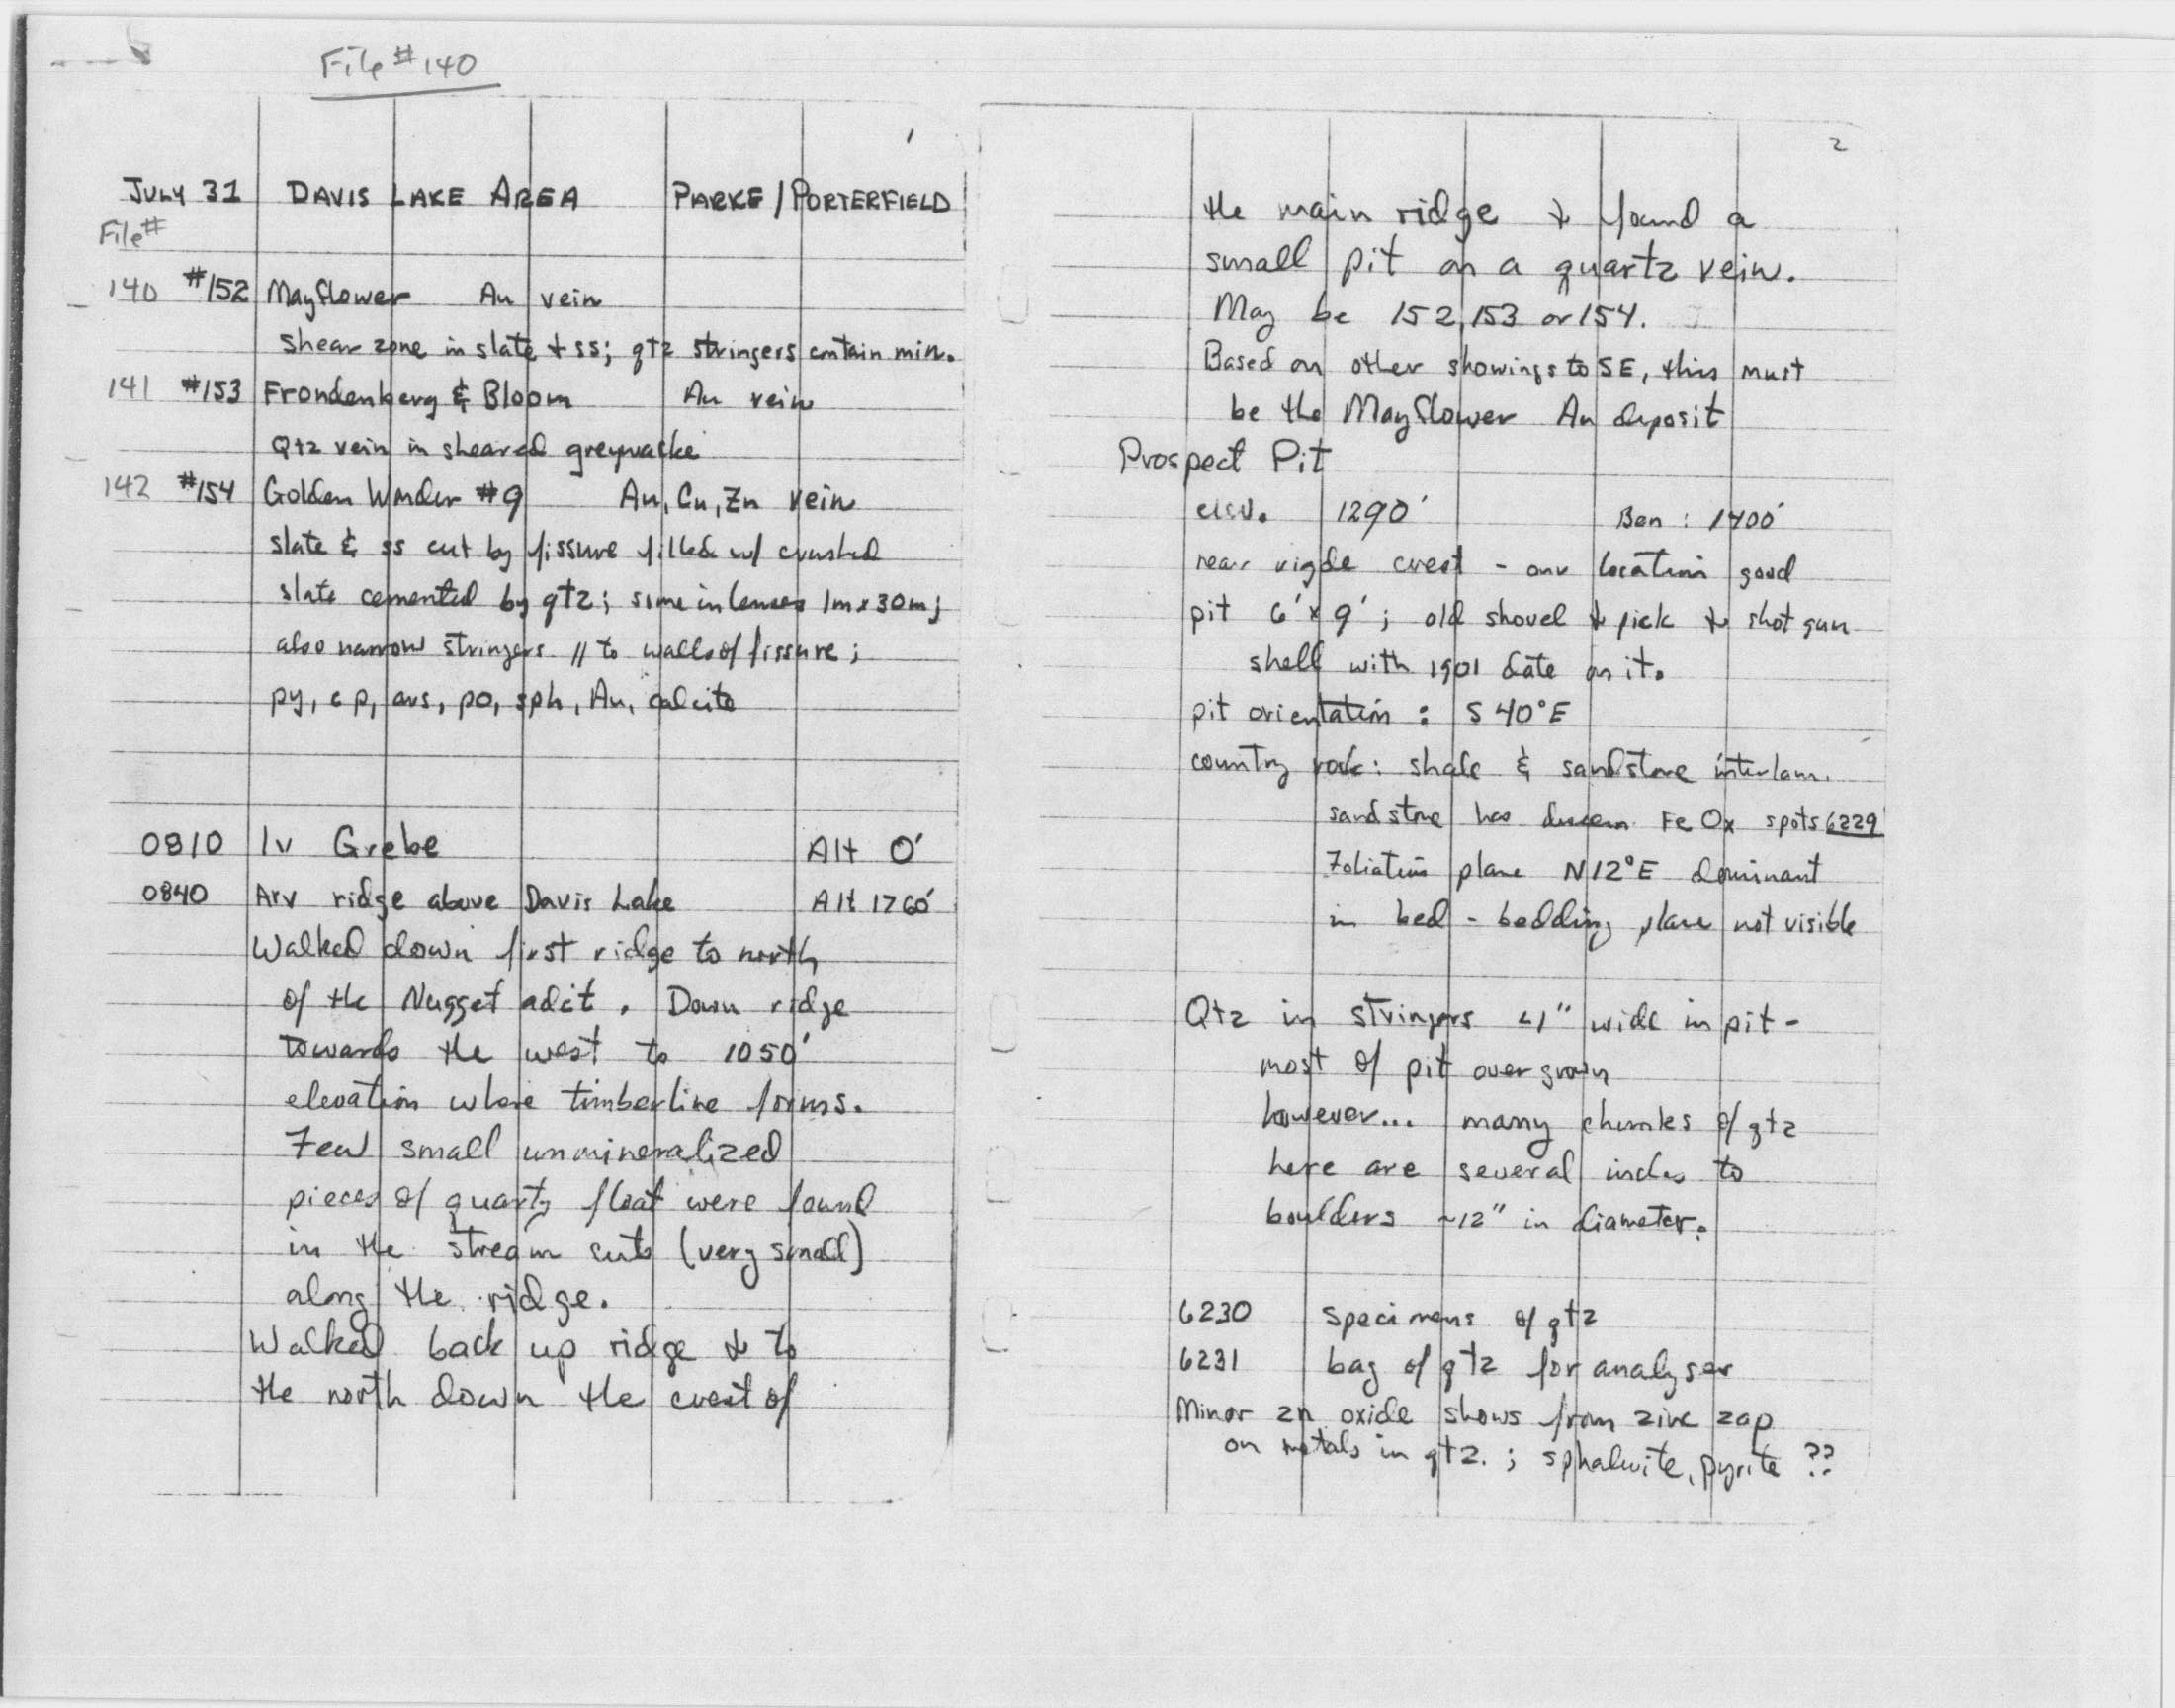 File #140
1
JULY 31 DAVIS LAKE AREA PARKE/PORTERFIELD
File#
140 #152 Mayflower Au vein
shear zone in slate + ss; qtz stringers contain min.
141 #153 Frondenberg & Bloom Au vein
Qtz vein in sheared greywacke
142 #154 Golden Wonder #9 Au, Cu, Zn vein
slate & ss cut by fissure filled w/ crushed
slate cemented by qtz; some in lenses 1m x 30m;
also narrow stringers // to walls of fissure;
py, cp, ars, po, sph, Au, calcite
0810 lv Grebe Alt 0'
0840 Arv ridge above Davis Lake Alt 1760'
Walked down first ridge to north
of the Nugget adit. Down ridge
towards the west to 1050'
elevation where timberline forms.
Few small unmineralized
pieces of quartz float were found
in the stream cuts (very small)
along the ridge.
Walked back up ridge & to
the north down the crest of
2
the main ridge & found a
small pit on a quartz vein.
May be 152, 153 or 154.
Based on other showings to SE, this must
be the Mayflower Au deposit
Prospect Pit
elev. 1290' Ben: 1400'
near rigde crest - our location good
pit 6' x 9'; old shovel & pick & shot gun
shell with 1901 date on it.
pit orientation: S 40°E
country rock: shale & sandstone interlam.
sandstone has FeOx spots 6229
Foliation plane N12°E dominant
in bed - bedding plane not visible
Qtz in stringers <1" wide in pit -
most of pit overgrown
however... many chunks of qtz
here are several inches to
boulders ~12" in diameter.
6230 specimens of qtz
6231 bag of qtz for analyses
Minor zn oxide shows from zinc zap
on metals in qtz.; sphalerite, pyrite ??